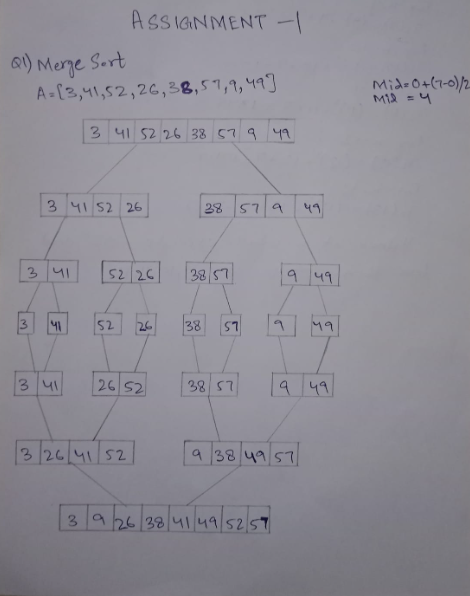 ASSIGNMENT -1
Q1) Merge Sort
A=[3,41,52,26,38,57,9,49]
Mid=0+(7-0)/2
Mid = 4
3 41 52 26 38 57 9 49
3 41 52 26 38 57 9 49
3 41 52 26 38 57 9 49
3 41 52 26 38 57 9 49
3 41 26 52 38 57 9 49
3 26 41 52 9 38 49 57
3 9 26 38 41 49 52 57